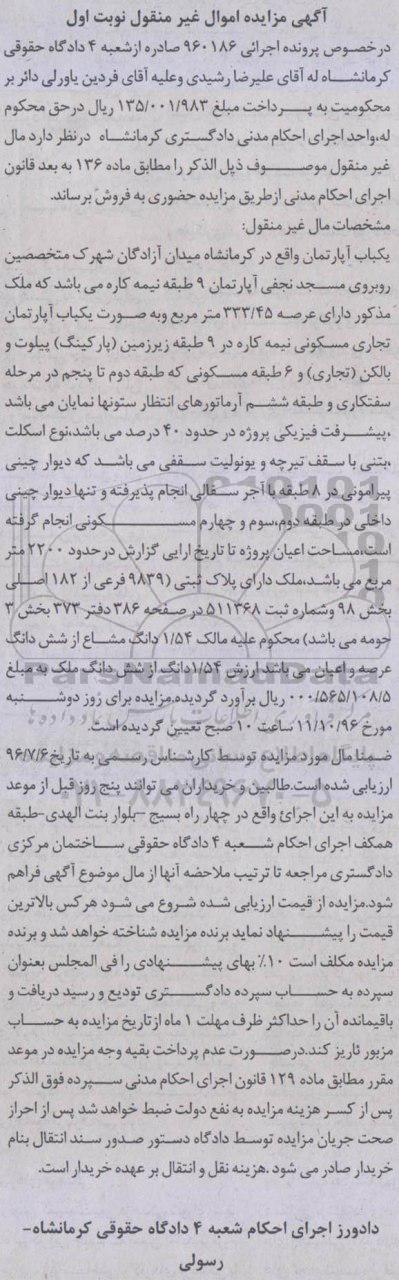 آگهی مزایده اموال غیر منقول نوبت اول
درخصوص پرونده اجرائی ۹۶۰۱۸۶ صادره ازشعبه ۴ دادگاه حقوقی
کرمانشاه له آقای علیرضا رشیدی وعلیه آقای فردین یاورلی دائر بر
محکومیت به پرداخت مبلغ ۱۳۵/۰۰۱/۹۸۳ ریال درحق محکوم
له،واحد اجرای احکام مدنی دادگستری کرمانشاه درنظر دارد مال
غیر منقول موصوف ذیل الذکر را مطابق ماده ۱۳۶ به بعد قانون
اجرای احکام مدنی ازطریق مزایده حضوری به فروش برساند.
مشخصات مال غیر منقول:
یکباب آپارتمان واقع در کرمانشاه میدان آزادگان شهرک متخصصین
روبروی مسجد نجفی آپارتمان ۹ طبقه نیمه کاره می باشد که ملک
مذکور دارای عرصه ۳۳۳/۴۵ متر مربع وبه صورت یکباب آپارتمان
تجاری مسکونی نیمه کاره در ۹ طبقه زیرزمین (پارکینگ) پیلوت و
بالکن (تجاری) و ۶ طبقه مسکونی که طبقه دوم تا پنجم در مرحله
سفتکاری و طبقه ششم آرماتورهای انتظار ستونها نمایان می باشد
،پیشرفت فیزیکی پروژه در حدود ۴۰ درصد می باشد،نوع اسکلت
،بتنی با سقف تیرچه و یونولیت سقفی می باشد که دیوار چینی
پیرامونی در ۸ طبقه با آجر سفالی انجام پذیرفته و تنها دیوار چینی
داخلی در طبقه دوم،سوم و چهارم مسکونی انجام گرفته
است،مساحت اعیان پروژه تا تاریخ ارایی گزارش درحدود ۲۲۰۰ متر
مربع می باشد،ملک دارای پلاک ثبتی (۹۸۳۹ فرعی از ۱۸۲ اصلی
بخش ۹۸ وشماره ثبت ۵۱۱۳۶۸ در صفحه ۳۸۶ دفتر ۳۷۳ بخش ۳
حومه می باشد) محکوم علیه مالک ۱/۵۴ دانگ مشاع از شش دانگ
عرصه و اعیان می باشد ارزش ۱/۵۴دانگ از شش دانگ ملک به مبلغ
۰۰۰/۵۶۵/۱۰۸/۵ ریال برآورد گردیده.مزایده برای روز دوشنبه
مورخ ۱۱/۱۰/۹۶ ساعت ۱۰ صبح تعیین گردیده است.
ضمنا مال مورد مزایده توسط کارشناس رسمی به تاریخ ۹۶/۷/۶
ارزیابی شده است.طالبین و خریداران می توانند پنج روز قبل از موعد
مزایده به این اجرائ واقع در چهار راه بسیج –بلوار بنت الهدی-طبقه
همکف اجرای احکام شعبه ۴ دادگاه حقوقی ساختمان مرکزی
دادگستری مراجعه تا ترتیب ملاحضه آنها از مال موضوع آگهی فراهم
شود.مزایده از قیمت ارزیابی شده شروع می شود هرکس بالاترین
قیمت را پیشنهاد نماید برنده مزایده شناخته خواهد شد و برنده
مزایده مکلف است ۱۰٪ بهای پیشنهادی را فی المجلس بعنوان
سپرده به حساب سپرده دادگستری تودیع و رسید دریافت و
باقیمانده آن را حداکثر ظرف مهلت ۱ ماه ازتاریخ مزایده به حساب
مزبور ئاریز کند.درصورت عدم پرداخت بقیه وجه مزایده در موعد
مقرر مطابق ماده ۱۲۹ قانون اجرای احکام مدنی سپرده فوق الذکر
پس از کسر هزینه مزایده به نفع دولت ضبط خواهد شد پس از احراز
صحت جریان مزایده توسط دادگاه دستور صدور سند انتقال بنام
خریدار صادر می شود .هزینه نقل و انتقال بر عهده خریدار است.
دادورز اجرای احکام شعبه ۴ دادگاه حقوقی کرمانشاه-
رسولی
ParsNamadData